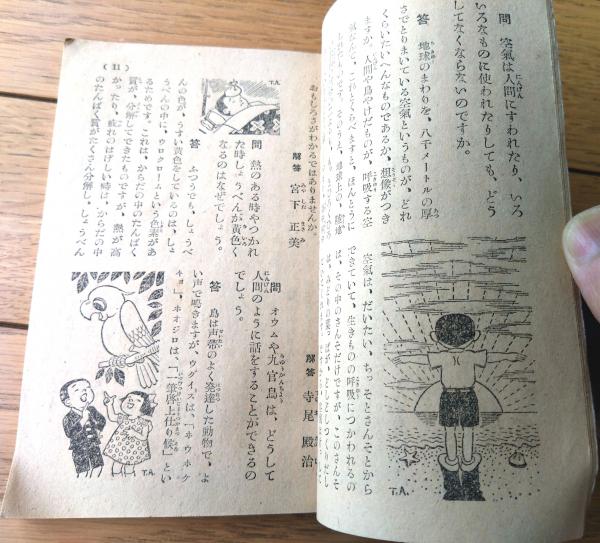 問　空氣は人間にすわれたり、いろ
いろなものに使われたりしても、どう
してなくならないのですか。
答　地球のまわりを、八千メートルの厚
さでとりまいている空氣というものが、どれ
くらいたいへんなものであるか、想像がつき
ますか。人間や鳥やけだものが、呼吸する空
空氣は、だいたい、ちっそとさんそとから
できていて、生きものの呼吸につかわれるの
は、その中のさんそだけですが、このさんそ
T.A.
おもしろさがわかるではありませんか。
解答　宮下正美
問　熱のある時やつかれ
た時しょうべんが黄色く
なるのはなぜでしょう。
答　ふつうでも、しょうべ
んの色が、うすい黄色をしているのは、しょ
うべんの中に、ウロクロームという色素があ
るためです。これは、からだの中のたんぱく
質が、分解してできたものですが、熱が高
かったり、疲れのはげしい時は、からだの中
のたんぱく質がたくさん分解し、しょうべん
T.A.
(11)
解答　寺尾殿治
問　オウムや九官鳥は、どうして
人間のように話をすることができるの
でしょう。
答　鳥は声帯のよく発達した動物で、よ
い声で鳴きますが、ウグイスは、「ホウホケ
キョ」、ホオジロは、「一筆啓上仕り候」とい
T.A.